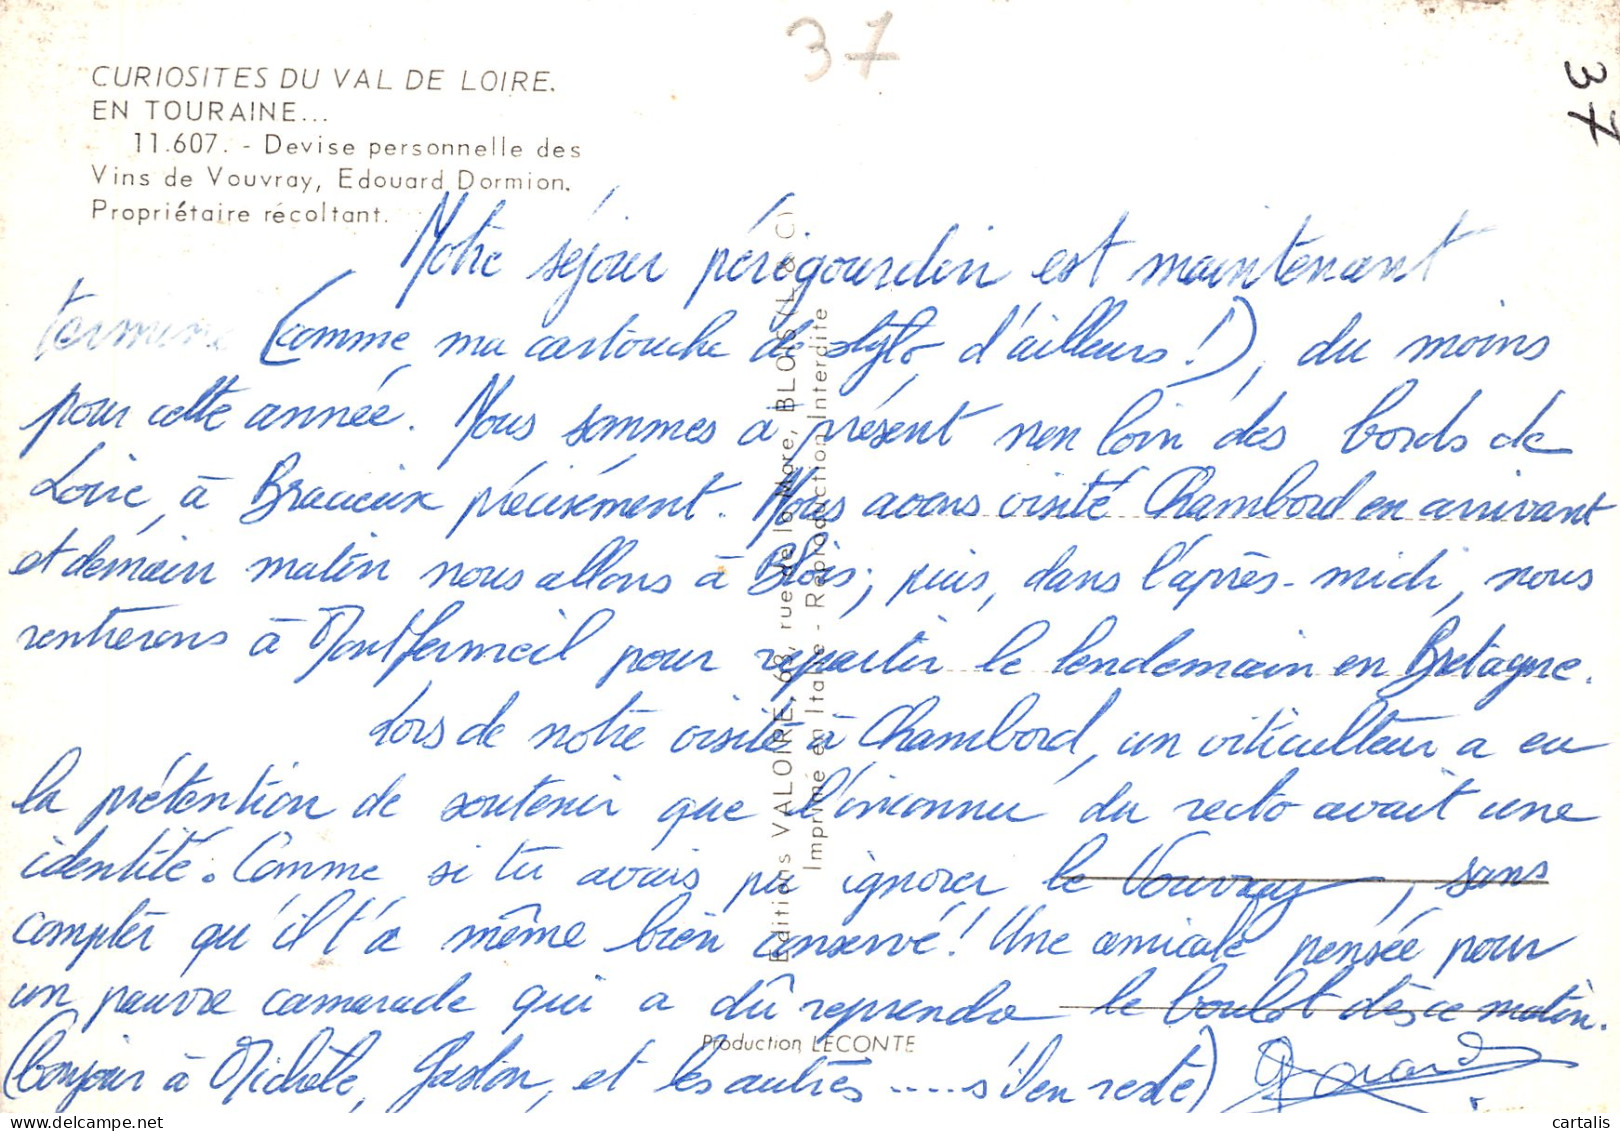 37
37
CURIOSITES DU VAL DE LOIRE.
EN TOURAINE...
11.607. - Devise personnelle des
Vins de Vouvray, Edouard Dormion.
Propriétaire récoltant.
Notre séjour périgourdin est maintenant
terminé (comme ma cartouche de stylo d'ailleurs !), du moins
pour cette année. Nous sommes à présent non loin des bords de
Loire, à Bracieux précisément. Nous avons visité Chambord en arrivant
et demain matin nous allons à Blois; puis, dans l'après-midi, nous
rentrerons à Montfermeil pour repartir le lendemain en Bretagne.
Lors de notre visite à Chambord, un viticulteur a eu
la prétention de soutenir que l'inconnu du recto avait une
identité. Comme si tu avais pu ignorer le Vouvray, sans
compter qu'il t'a même bien conservé! Une amicale pensée pour
un pauvre camarade qui a dû reprendre le boulot dès ce matin.
(bonjour à Michèle, Gaston, et les autres ..... s'il en reste) Gérard
Editions VALOIRE, 68, rue de la Mare, BLOIS (L. & C)
Imprimé en Italie - Reproduction Interdite
Production LECONTE
cartalis
www.delcampe.net